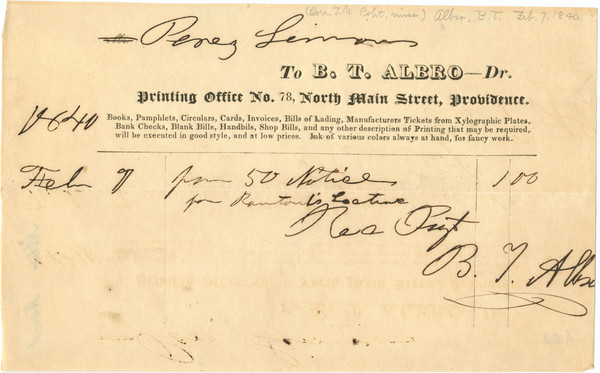 (Dorr, T.W. Polit. misc.) Albro, B.T. Feb. 7, 1840
Perez Simmons
To B. T. ALBRO—Dr.
Printing Office No. 78, North Main Street, Providence.
Books, Pamphlets, Circulars, Cards, Invoices, Bills of Lading, Manufacturers Tickets from Xylographic Plates,
Bank Checks, Blank Bills, Handbils, Shop Bills, and any other description of Printing that may be required,
will be executed in good style, and at low prices. Ink of various colors always at hand, for fancy work.
1840
Feb 7 50 Notices 1 00
for Rantoul's Lecture
Rec Payt
B. T. Albro